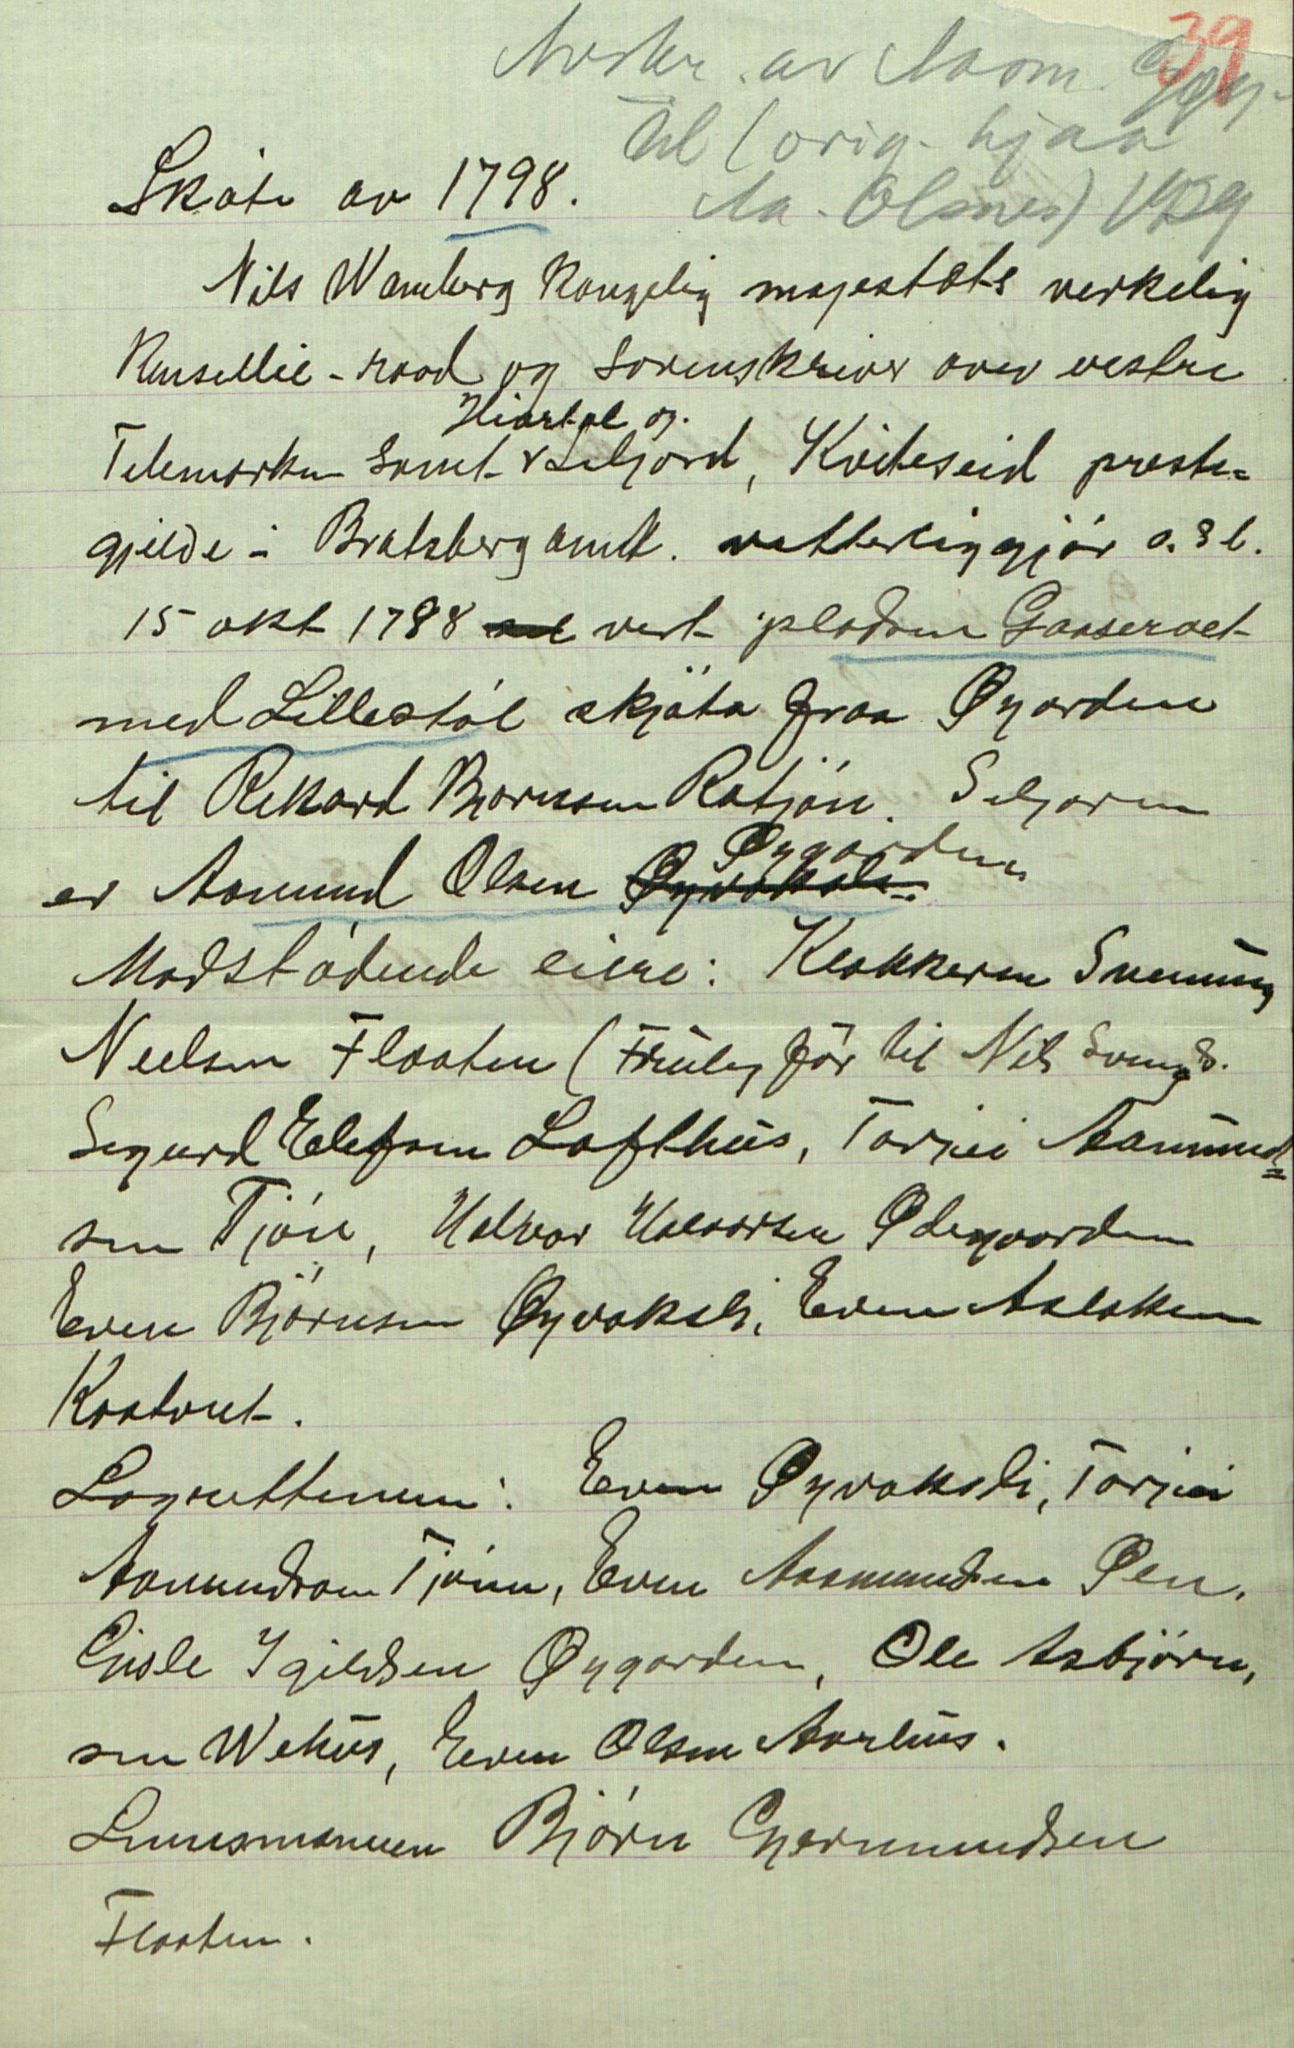 39
Avskr. av Aasm.
til (orig. hjaa
Aa. Olsnes) 1/7 39
Skøte av 1798.
Nils Wamberg Kongelig majestæts verkelig
Kansellie-raad og Sorenskriver over vestre
Hiartdal og
Telemarken samt v Seljord, Kviteseid preste-
gjelde i Bratsberg amt. vitterliggjør o.s.v.
15 okt 1788 vert pladsen Gaaseroet
med Lillestøl skjøta fraa Øygarden
til Rikard Bjørnsen Rotjøn. Seljaren
Øygarden
er Aamund Olsen Øyvaksli
Modstødende eiere: Klokkeren Svenning
Neelsen Flaaten (Truleg før til Nils Svengs.
Sigurd Elefsen Lofthus, Torjei Aamund=
sen Tjøn, Halvor Halvorsen Ødegaarden
Even Bjørnsen Øyvaksli, Even Aslaksen
Kaatveit.
Lagrettemenn: Even Øyvaksli, Torjei
Aamundsen Tjønn, Even Aasmundsen Øen,
Gisle Igildsen Øygarden, Ole Asbjørn,
sen Wehus, Even Olsen Aarhus.
Lensmannen Bjørn Gjermundsen
Flaaten.